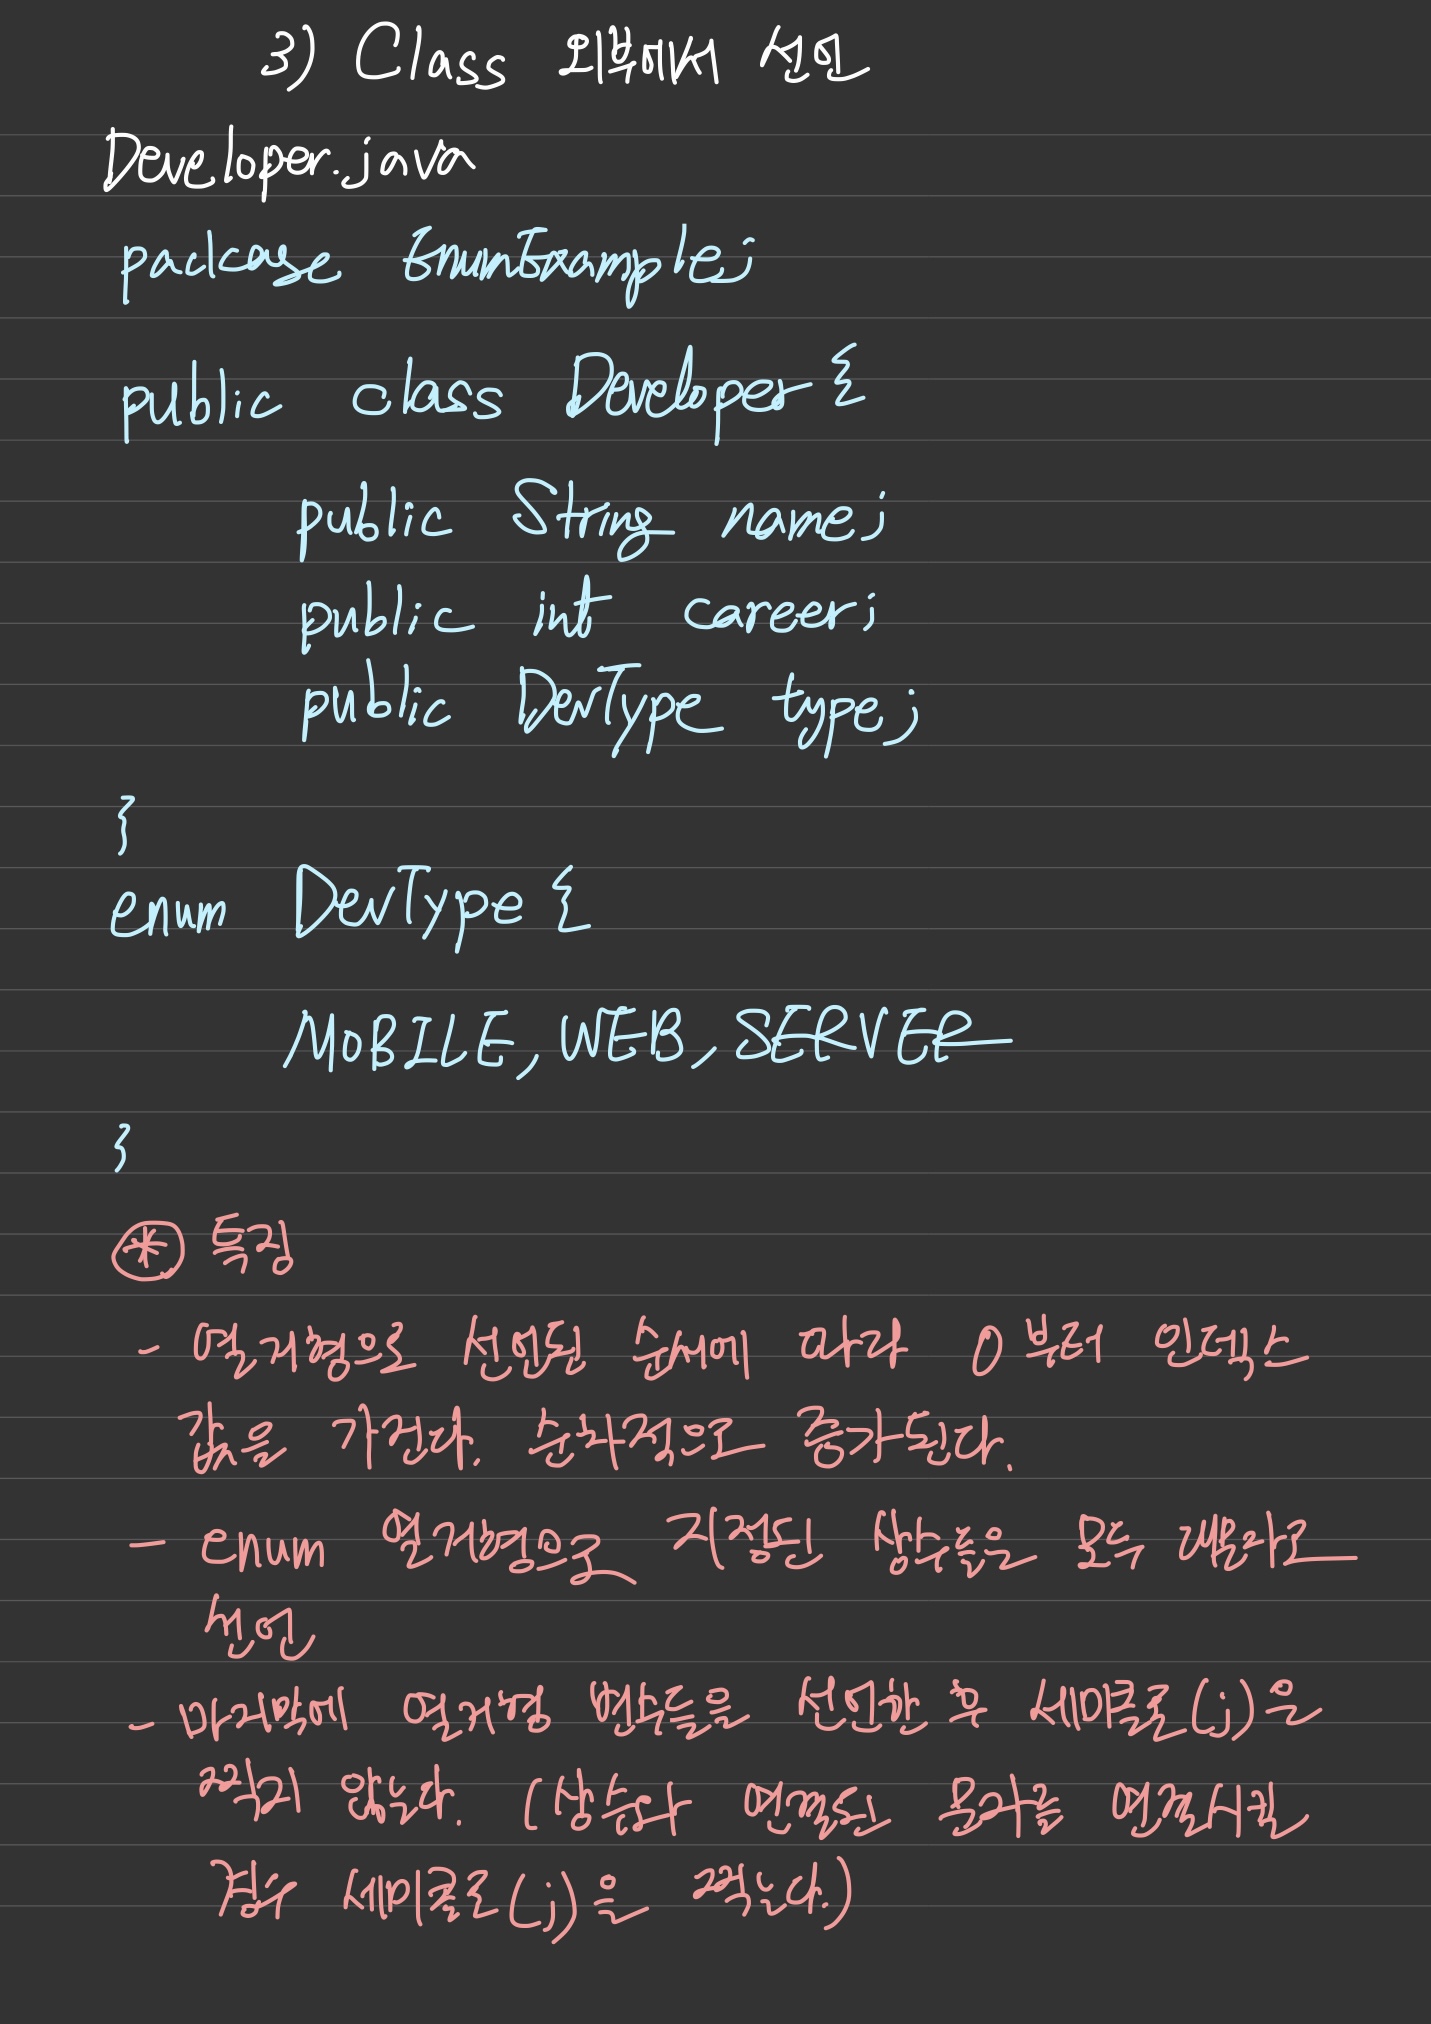 3) Class 외부에서 선언
Developer.java
package EnumExample;
public class Developer {
public String name;
public int career;
public DevType type;
}
enum DevType {
MOBILE, WEB, SERVER
}
* 특징
- 열거형으로 선언된 순서에 따라 0부터 인덱스
값을 가진다. 순차적으로 증가된다.
- enum 열거형으로 지정된 상수들은 모두 대문자로
선언
- 마지막에 열거형 변수들을 선언한 후 세미콜론(;)은
찍지 않는다. (상수와 연결된 문자를 연결시킬
경우 세미콜론(;)은 찍는다.)